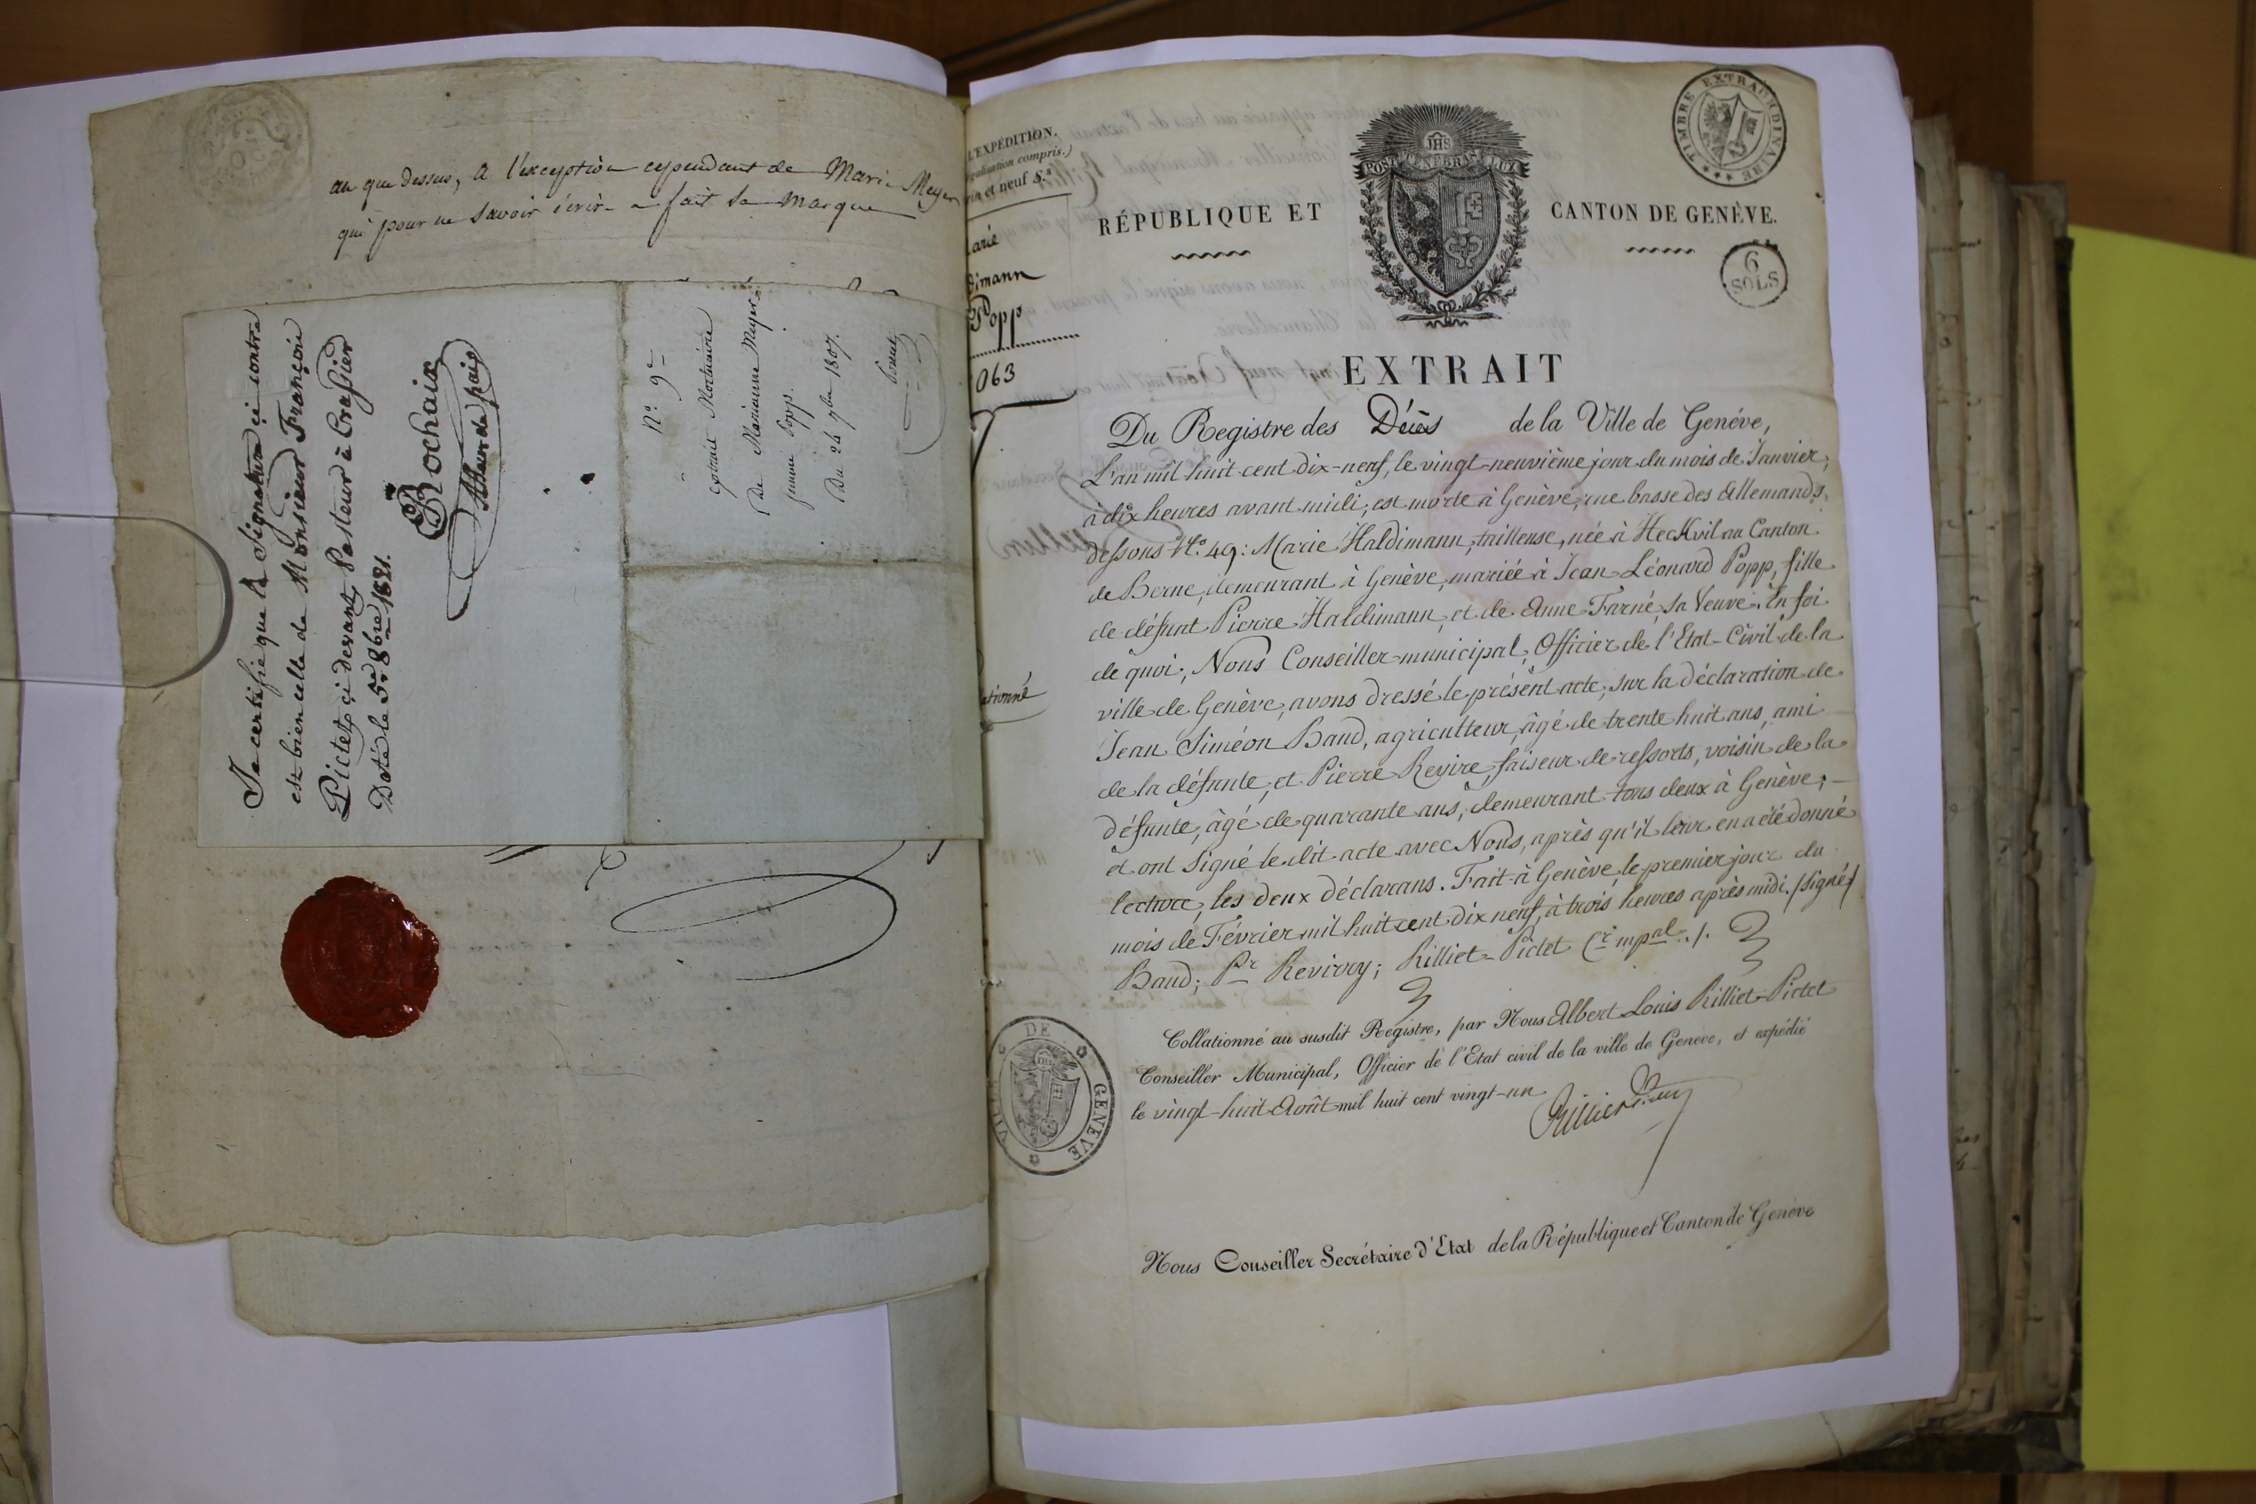 au que dessus, a l'exception cependant de Marie Meyer
qui pour ne savoir écrire a fait sa marque
Je certifie que la Signature ci contre
est bien celle de Monsieur François
Pictet ci devant Pasteur à Crassier
Daté le 5e 8bre 1821.
Rochaix
Nº 9
extrait Mortuaire
De Marianne Meyer
femme Popp.
Du 24 7bre 1807.
L'EXPÉDITION.
compris.)
et neuf s.s
arie
dimann
Popp
063
ationné
TIMBRE EXTRAORDINAIRE
JHS
POST TENEBRAS LUX
RÉPUBLIQUE ET CANTON DE GENÈVE.
6
SOLS
EXTRAIT
Du Registre des Décès de la Ville de Genéve,
L'an mil huit cent dix-neuf, le vingt-neuvième jour du mois de Janvier,
à dix heures avant midi, est morte à Genève, rue basse des Allemands
dessous Nº 49: Marie Haldimann, tailleuse, née à Heckvil au Canton
de Berne, demeurant à Genève, mariée à Jean Léonard Popp, fille
de défunt Pierre Haldimann, et de Anne Farné, sa Veuve. En foi
de quoi, Nous Conseiller municipal, Officier de l'Etat-Civil de la
ville de Genève, avons dressé le présent acte, sur la déclaration de
Jean Siméon Baud, agriculteur, âgé de trente huit ans, ami
de la défunte, et Pierre Revire, faiseur de ressorts, voisin de la
défunte, âgé de quarante ans, demeurant tous deux à Genève;
et ont Signé le dit acte avec Nous, après qu'il leur en a été donné
lecture, les deux déclarans. Fait à Genève, le premier jour du
mois de Février mil huit cent dix neuf, à trois heures après midi. /signé/
Baud; Pr Revirey; Rilliet-Pictet Cr mpal ./.
Collationné au susdit Registre, par Nous Albert Louis Rilliet-Pictet
Conseiller Municipal, Officier de l'Etat civil de la ville de Geneve, et expédié
le vingt-huit Août mil huit cent vingt-un
VILLE DE GENEVE
Nous Conseiller Secrétaire d'Etat de la République et Canton de Genève